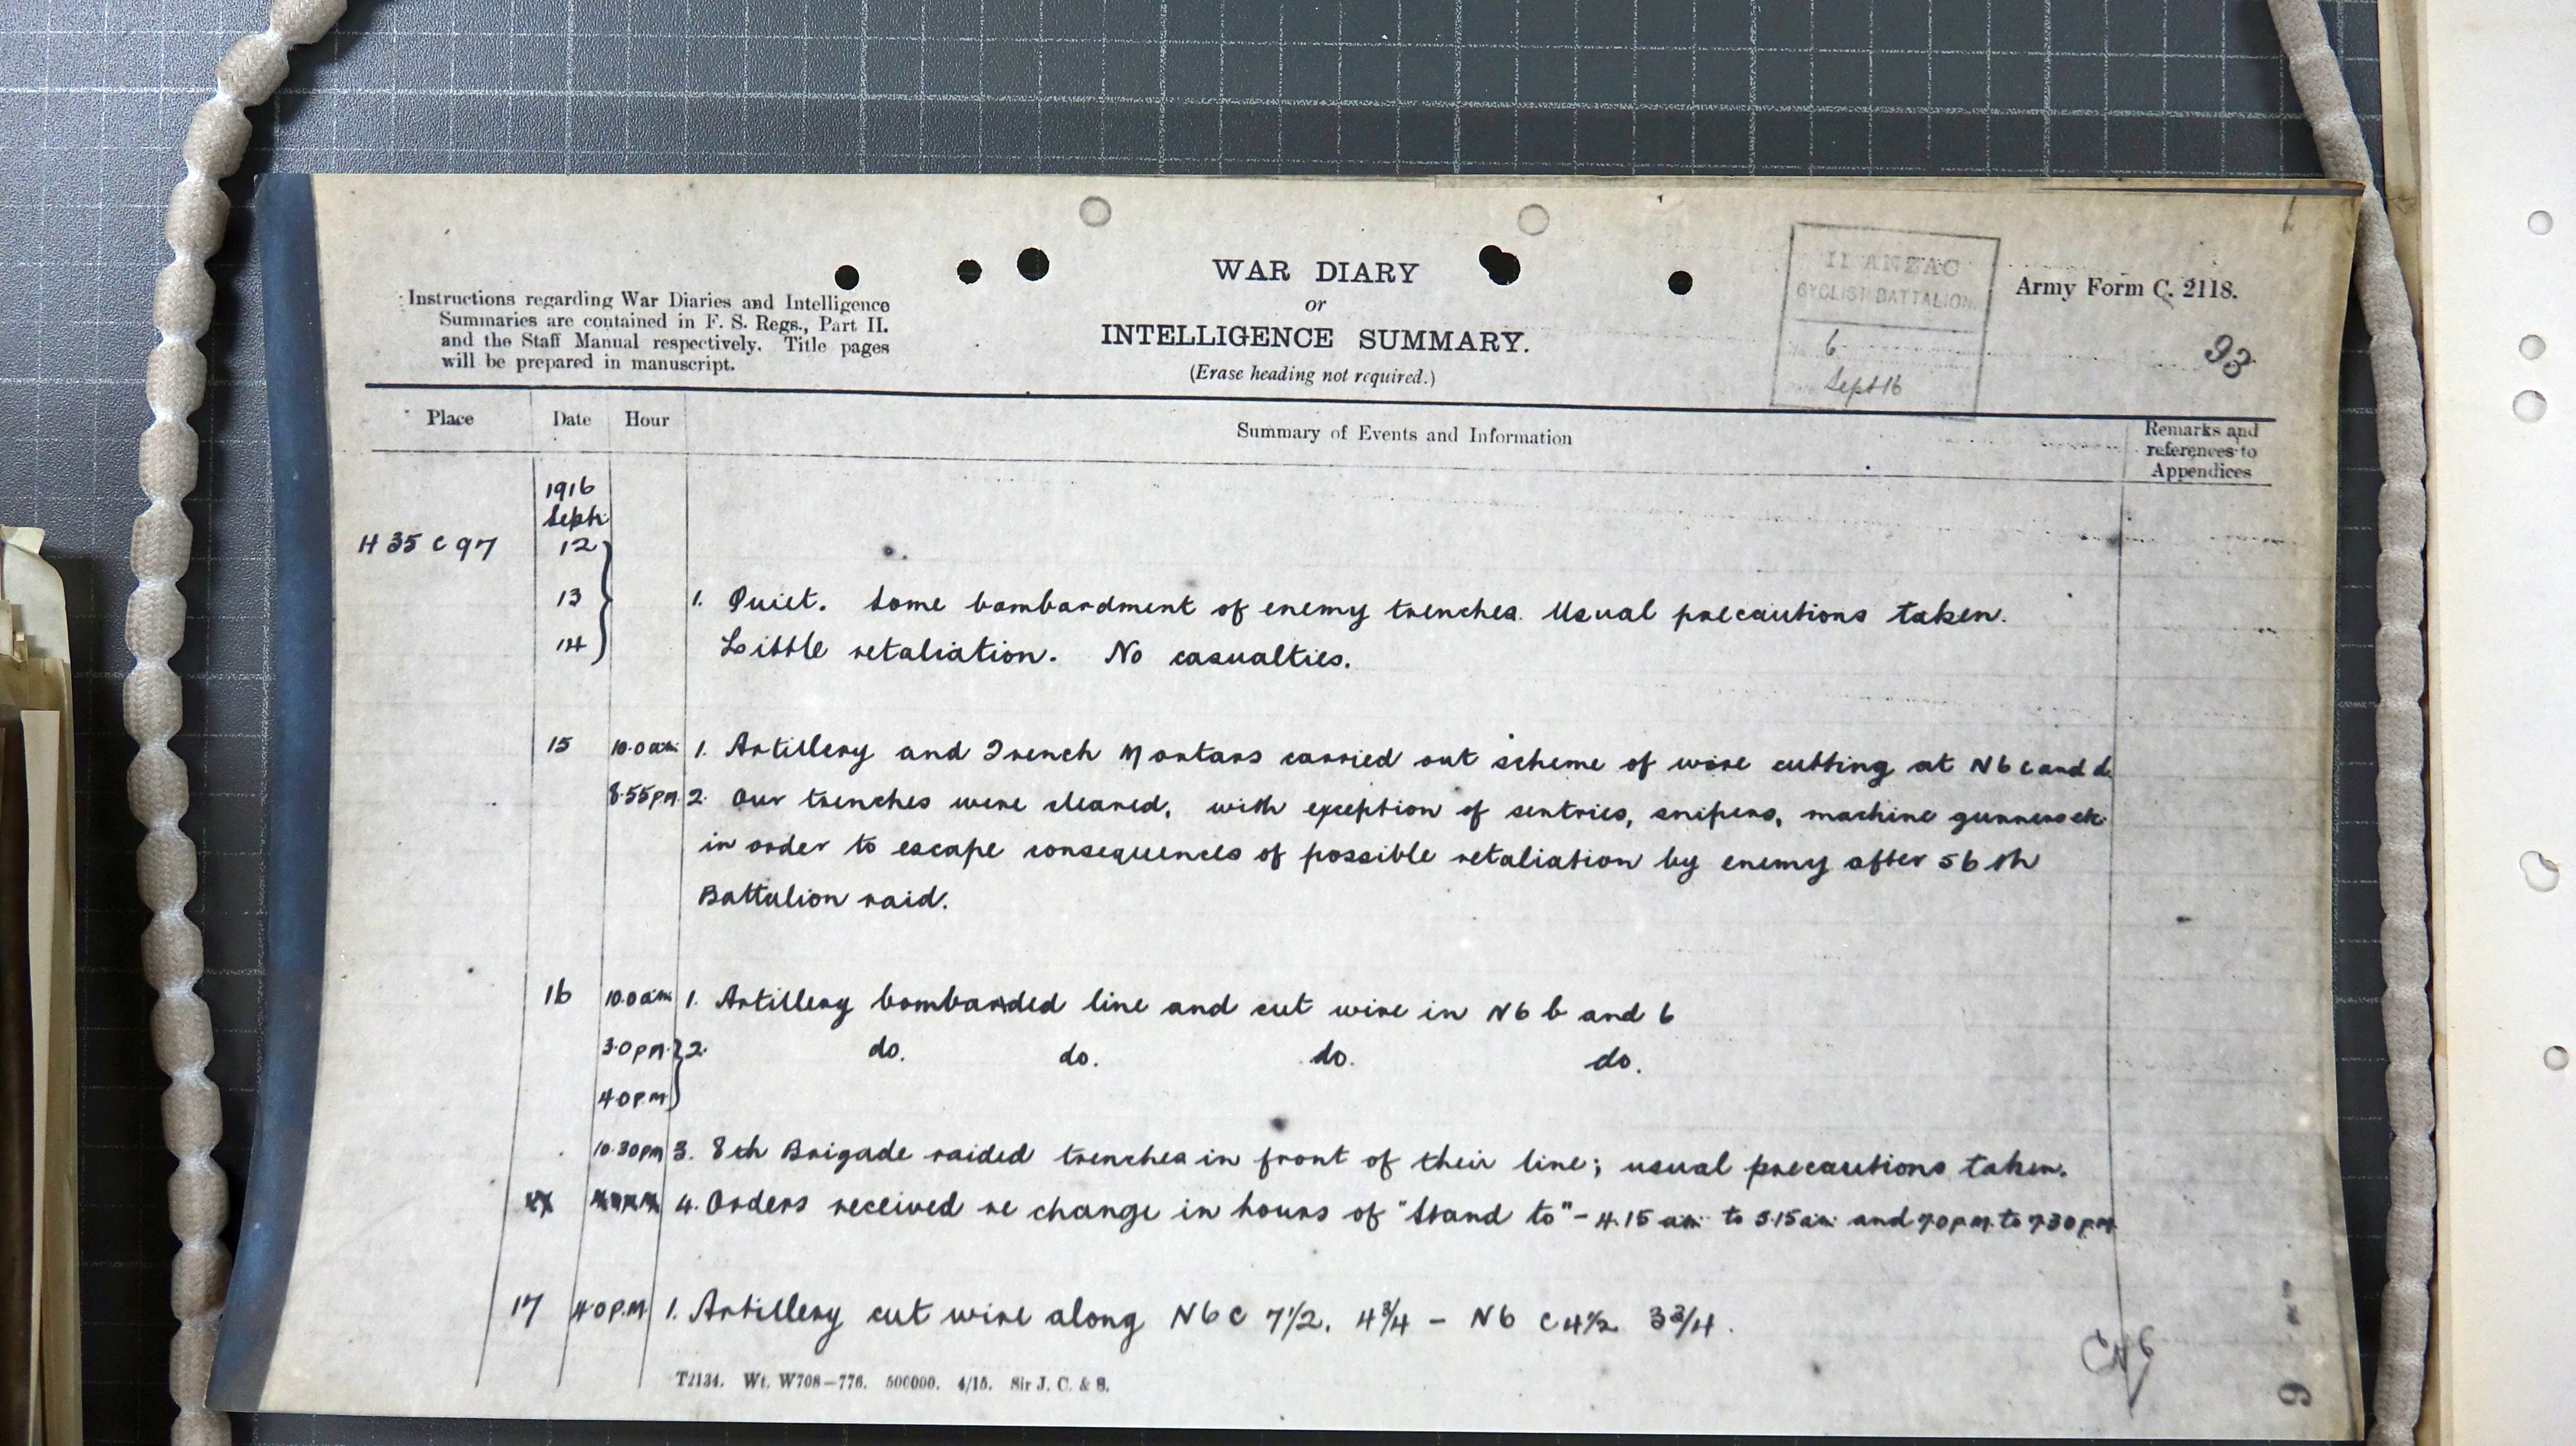 WAR DIARY
or
INTELLIGENCE SUMMARY.
(Erase heading not required.)
Instructions regarding War Diaries and Intelligence
Summaries are contained in F. S. Regs., Part II.
and the Staff Manual respectively. Title pages
will be prepared in manuscript.
II ANZAC
CYCLIST BATTALION
6
Sept 16
Army Form C. 2118.
93
Place Date Hour Summary of Events and Information Remarks and
references to
Appendices
1916
Sept.
H 35 c 97 12
13 1. Quiet. Some bombardment of enemy trenches. Usual precautions taken.
14 Little retaliation. No casualties.
15 10.0 am 1. Artillery and Trench Mortars carried out scheme of wire cutting at N6 c and d.
8.55 PM. 2. Our trenches were cleared, with exception of sentries, snipers, machine gunners etc.
in order to escape consequences of possible retaliation by enemy after 56th
Battalion raid.
16 10.0 am 1. Artillery bombarded line and cut wire in N6 b and 6
3.0 PM. 2. do. do. do. do.
4.0 P.M.
10.30 PM 3. 8th Brigade raided trenches in front of their line; usual precautions taken.
4. Orders received re change in hours of "Stand to" - 4.15 am to 5.15 am and 7.0 P.M. to 7.30 P.M.
17 4.0 P.M. 1. Artillery cut wire along N6 C 7 1/2. 4 3/4 - N6 C 4 1/2 3 3/4.
T2134. Wt. W708-776. 500000. 4/15. Sir J. C. & S.
6